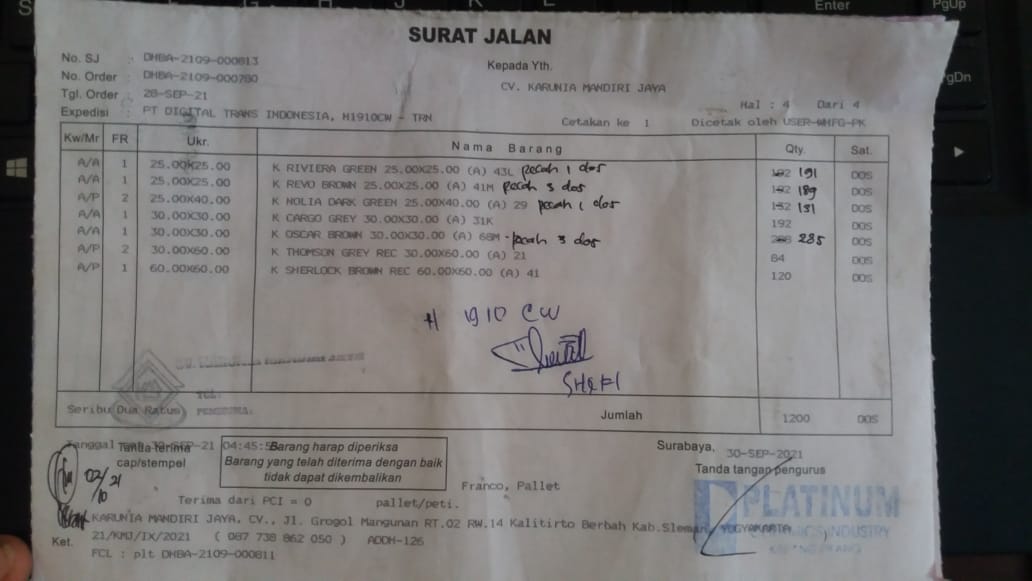 SURAT JALAN
No. SJ : DHBA-2109-000813
No. Order : DHBA-2109-000780
Tgl. Order : 28-SEP-21
Expedisi : PT DIGITAL TRANS INDONESIA, H1910CW - TRN
Kepada Yth.
CV. KARUNIA MANDIRI JAYA
Hal : 4 Dari 4
Cetakan ke 1 Dicetak oleh USER-WHFG-PK
Kw/Mr FR Ukr. Nama Barang Qty. Sat.
A/A 1 25.00X25.00 K RIVIERA GREEN 25.00X25.00 (A) 43L pecah 1 dos 192 191 DOS
A/A 1 25.00X25.00 K REVO BROWN 25.00X25.00 (A) 41M pecah 3 dos 192 189 DOS
A/P 2 25.00X40.00 K NOLIA DARK GREEN 25.00X40.00 (A) 29 pecah 1 dos 132 131 DOS
A/A 1 30.00X30.00 K CARGO GREY 30.00X30.00 (A) 31K 192 DOS
A/A 1 30.00X30.00 K OSCAR BROWN 30.00X30.00 (A) 68M - pecah 3 dos 288 285 DOS
A/P 2 30.00X60.00 K THOMSON GREY REC 30.00X60.00 (A) 21 84 DOS
A/P 1 60.00X60.00 K SHERLOCK BROWN REC 60.00X60.00 (A) 41 120 DOS
H 1910 CW
TGL:
PENERIMA:
Seribu Dua Ratus Jumlah 1200 DOS
30-SEP-21 04:45:5
Tanda terima
cap/stempel
02/21
10
Barang harap diperiksa
Barang yang telah diterima dengan baik
tidak dapat dikembalikan
Surabaya, 30-SEP-2021
Tanda tangan pengurus
Franco, Pallet
PLATINUM
CERAMICS INDUSTRY
Terima dari PCI = 0 pallet/peti.
KARUNIA MANDIRI JAYA, CV., Jl. Grogol Mangunan RT.02 RW.14 Kalitirto Berbah Kab.Sleman, YOGYAKARTA
Ket. 21/KMJ/IX/2021 ( 087 738 862 050 ) ADDH-126
FCL : plt DHBA-2109-000811